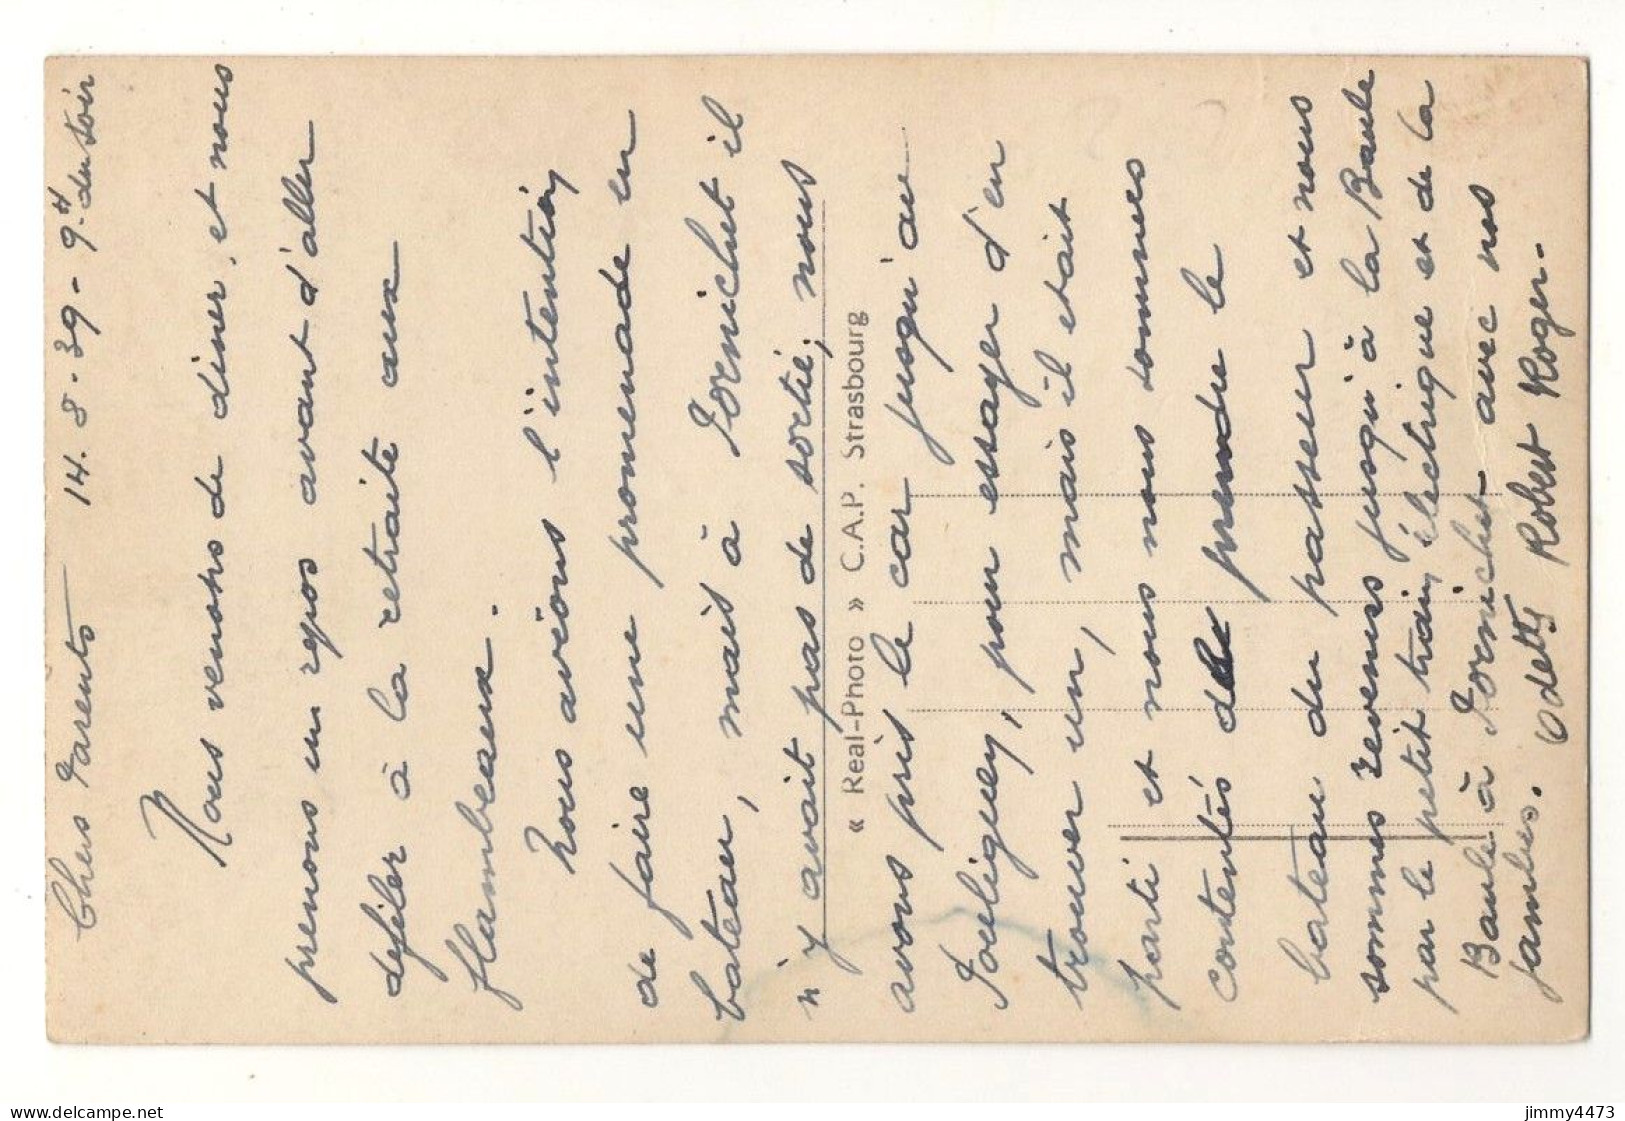 Chers Parents 14.8.39 - 9.H du soir
Nous venons de diner, et nous
prenons un repos avant d'aller
defiler à la retraite aux
flambeaux.
Nous avions l'intention
de faire une promenade en
bateau, mais à Pornichet il
n'y avait pas de sortie; nous
avons pris le car jusqu'au
Pouliguen, pour essayer d'en
trouver un, mais il etait
parti et nous nous sommes
contentés de prendre le
bateau du passeur et nous
sommes revenus jusqu'à la Baule
par le petit train électrique et de la
Baule à Pornichet avec nos
jambes. Odette Robert Roger.
« Real-Photo » C.A.P. Strasbourg
www.delcampe.net
jimmy4473